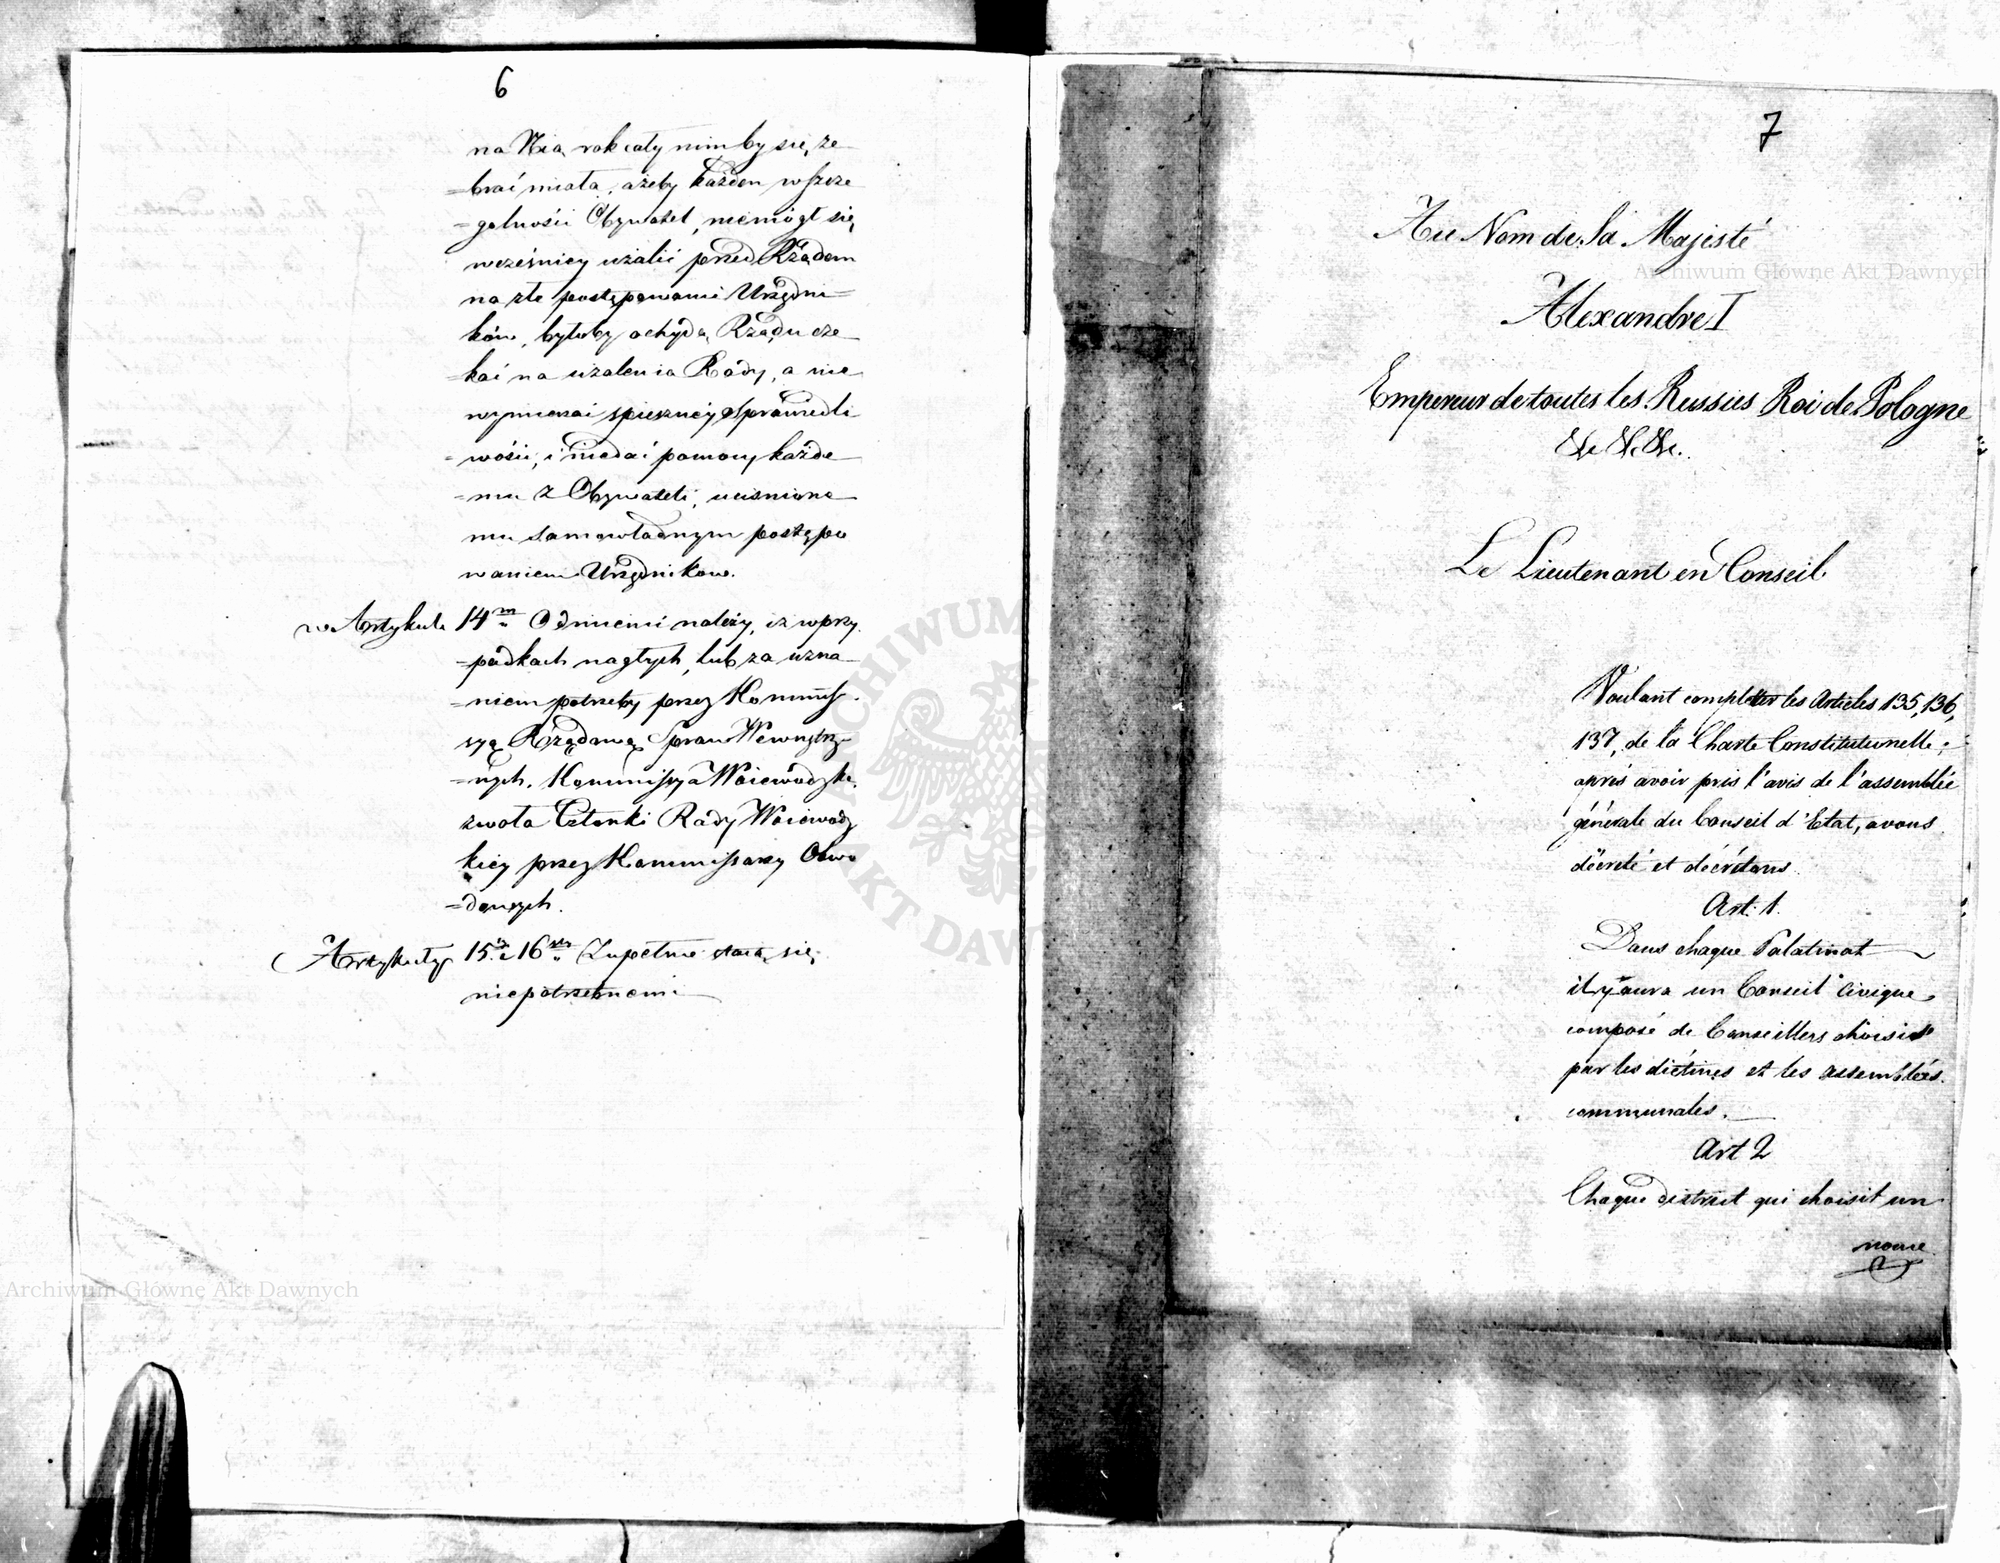 6
na Nią rok cały nim by się ze
=brać miała, ażeby każden w szcze
=gulności Obywatel, niemógł się
wcześnicy użalić przed Rządem
na złe postępowanie Urzędni=
ków, byłoby ochydą Rządu cze
=kać na użalenia Rady, a nie
wymierzać spieszney Sprawiedli
=wości, i niedać pomocy każde
=mu z Obywateli, uciśnione
mu samowładnym postępo
waniem Urzędników.
w Artykule 14m Odmienić należy, iż w przy
=padkach nagłych, lub za uzna
=niem potrzeby przez Kommis
syą Rządową Spraw Wewnętrz=
=nych. Kommissya Woiewódzka
zwoła Członki Rady Woiewódz
kiey przez Kommissarzy Obwo
=dowych.
Artykuły 15. i 16m Zupełnie staią się
niepotrzebnemi
7
Au Nom de Sa Majesté
Alexandre I
Empereur de toutes les Russies Roi de Pologne
&c &c &c.
Le Lieutenant en Conseil
Voulant completter les Articles 135, 136,
137, de la Charte Constitutionelle;
aprés avoir pris l'avis de l'assemblée
générale du Conseil d'Etat, avons
décreté et décrétons
Art: 1.
Dans chaque Palatinat
il y aura un Conseil Civique
composé de Conseillers choisis
par les diétines et les assemblées
communales.
Art 2
Chaque district qui choisit un
nonce
Archiwum Główne Akt Dawnych
Archiwum Główne Akt Dawnych
ARCHIWUM
AKT DAW